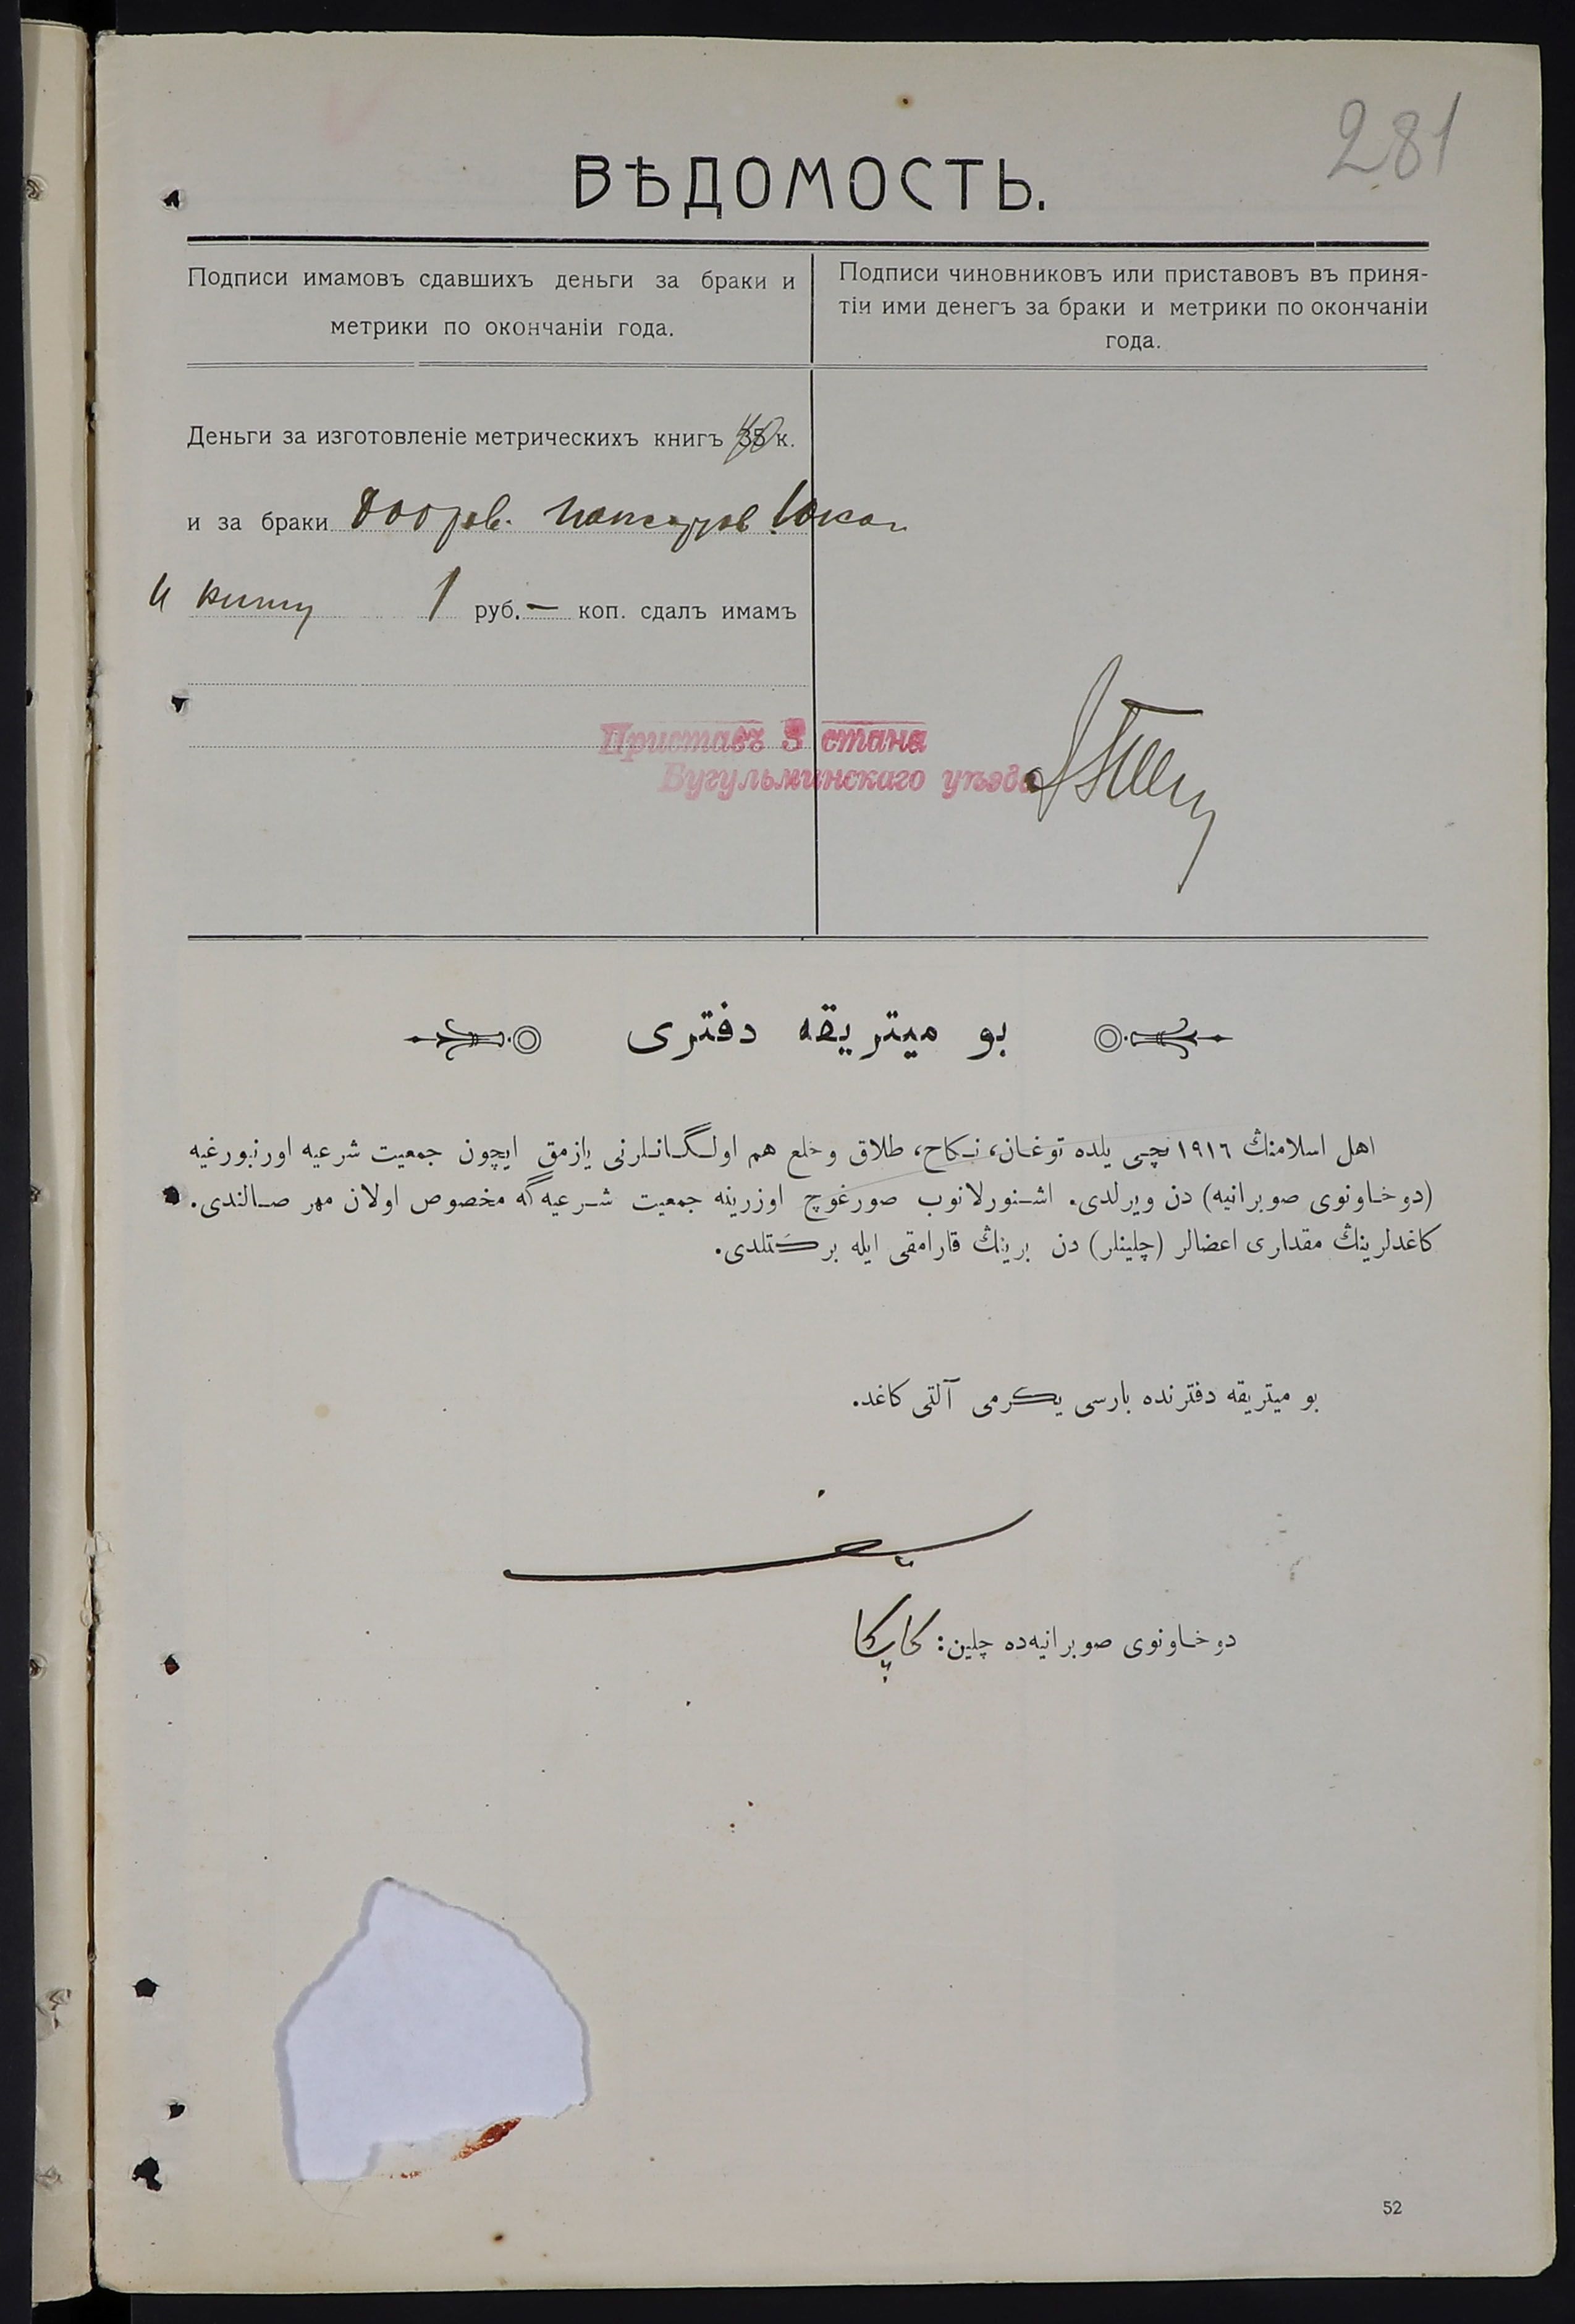 281
ВѢДОМОСТЬ.
Подписи имамовъ сдавшихъ деньги за браки и
метрики по окончаніи года.
Подписи чиновниковъ или приставовъ въ приня-
тіи ими денегъ за браки и метрики по окончаніи
года.
Деньги за изготовленіе метрическихъ книгъ 35 к.
и за браки
и книгу 1 руб. — коп. сдалъ имамъ
Приставъ 3 стана
Бугульминскаго уѣзда
بو ميتريقه دفترى
اهل اسلامنڭ ١٩١٦ نچى يلده توغان، نكاح، طلاق وخلع هم اولگانلرنى يازمق ايچون جمعيت شرعيه اورنبورغيه
(دوخاونوى صوبرانيه) دن ويرلدى. اشنورلانوب صورغوچ اوزرينه جمعيت شرعيه‌گه مخصوص اولان مهر صالندى.
كاغدلرينڭ مقدارى اعضالر (چلينلر) دن برينڭ قارامقى ايله بركتلدى.
بو ميتريقه دفترنده بارسى يكرمى آلتى كاغد.
دوخاونوى صوبرانيه‌ده چلين:
52